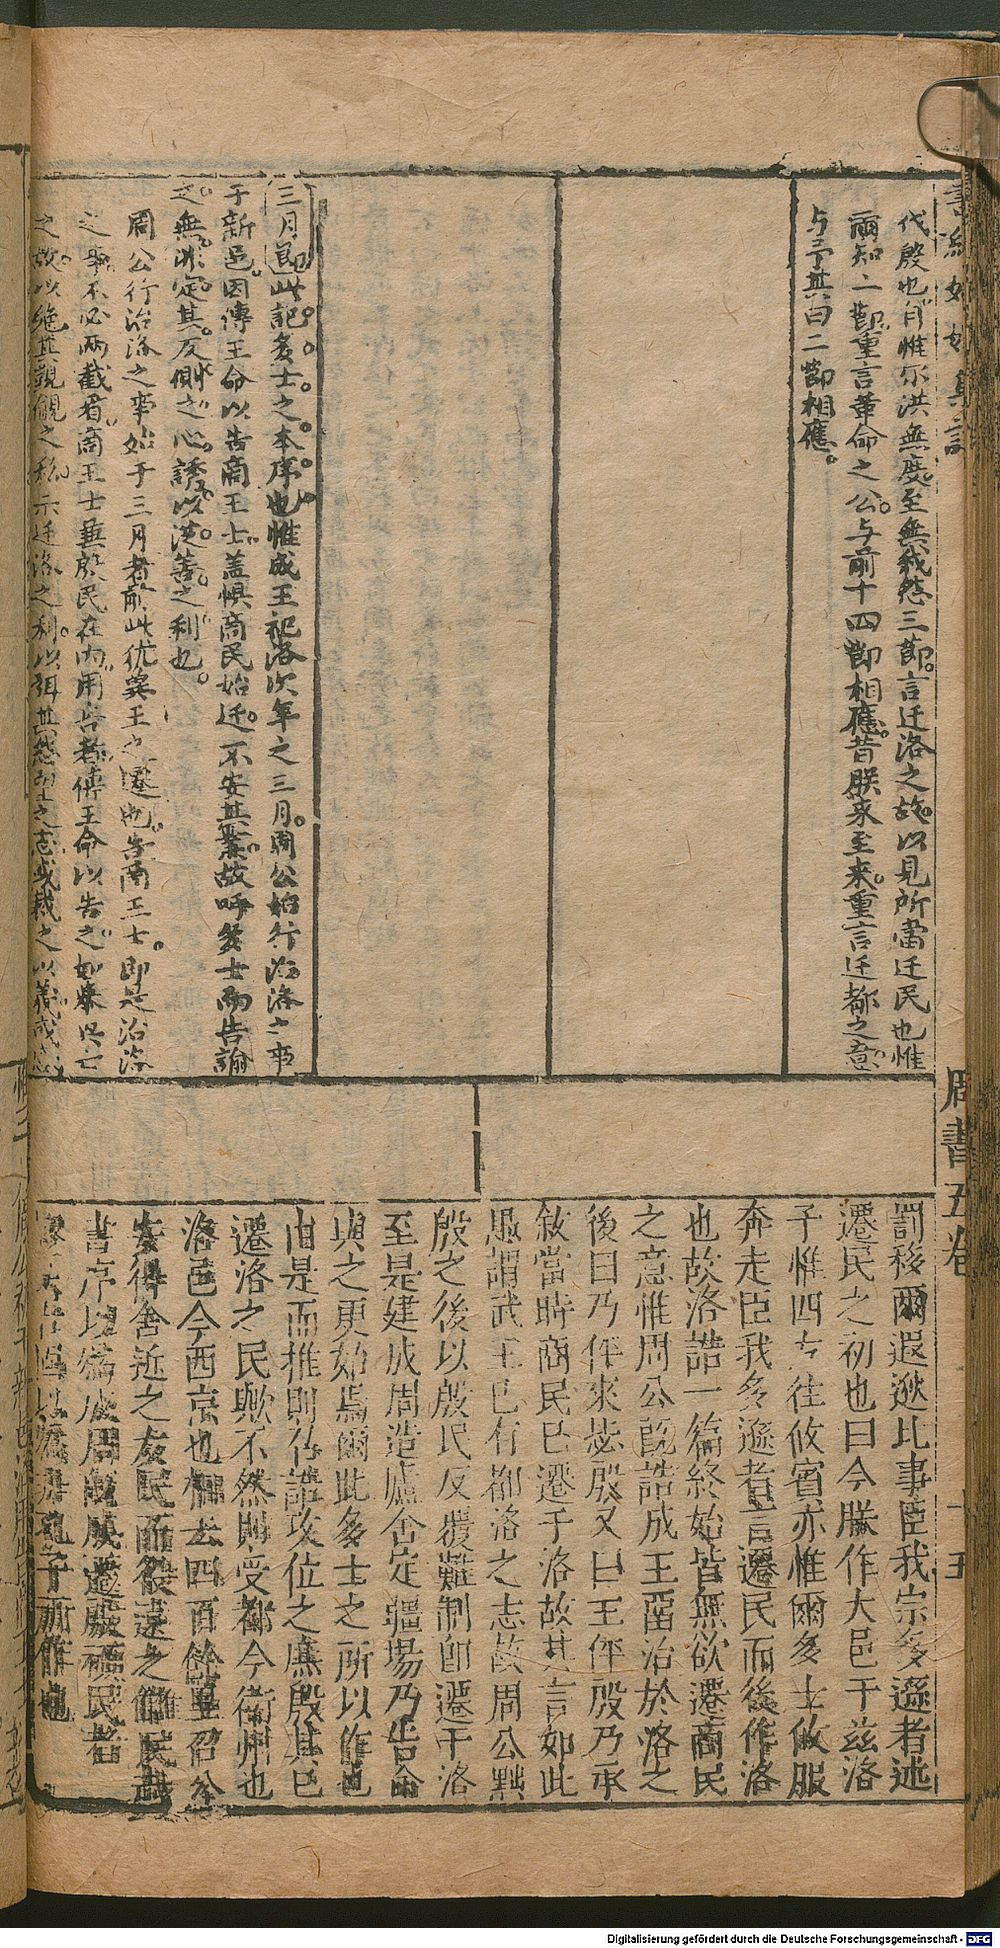 代殷也自惟尔洪無度至無我怨三節言迁洛之故以見所當迁民也惟
爾知二節重言革命之公与前十四節相應昔朕來至来重言迁都之意
与予其曰二節相應
三月節此記多士之本序也惟成王祀洛次年之三月周公始行治洛之事
于新邑因傳王命以告商王士盖惧商民始迁不安其業故呼多士而告諭
之無非定其反側之心誘以迁善之利也
周公行治洛之事始于三月者前此犹冀王之遷也告商王士即是治洛
之事不必兩截看商王士兼殷民在內用告者傳王命以告之如
之故以絶其覬覦之私示迁洛之利以弭其怨望之志或裁之以義或
周書五卷
十五
罰移爾遐逖比事臣我宗多遜者述
遷民之初也曰今朕作大邑于茲洛
予惟四方攸賓亦惟爾多士攸服
奔走臣我多遜者言遷民而後作洛
也故洛誥一篇終始皆無欲遷商民
之意惟周公既誥成王畱治於洛之
後曰乃伻來毖殷又曰王伻殷乃承
敘當時商民已遷于洛故其言如此
愚謂武王已有都洛之志故周公黜
殷之後以殷民反覆難制即遷于洛
至是建成周造廬舍定疆場乃告命
與之更始焉爾此多士之所以作也
由是而推則召誥攻位之庶殷其已
遷洛之民歟不然則受都今衛州也
洛邑今西京也相去四百餘里召公
安得舍近之友民而役遠之讎民哉
書序以為成周既成遷殷頑民者
Digitalisierung gefördert durch die Deutsche Forschungsgemeinschaft - DFG